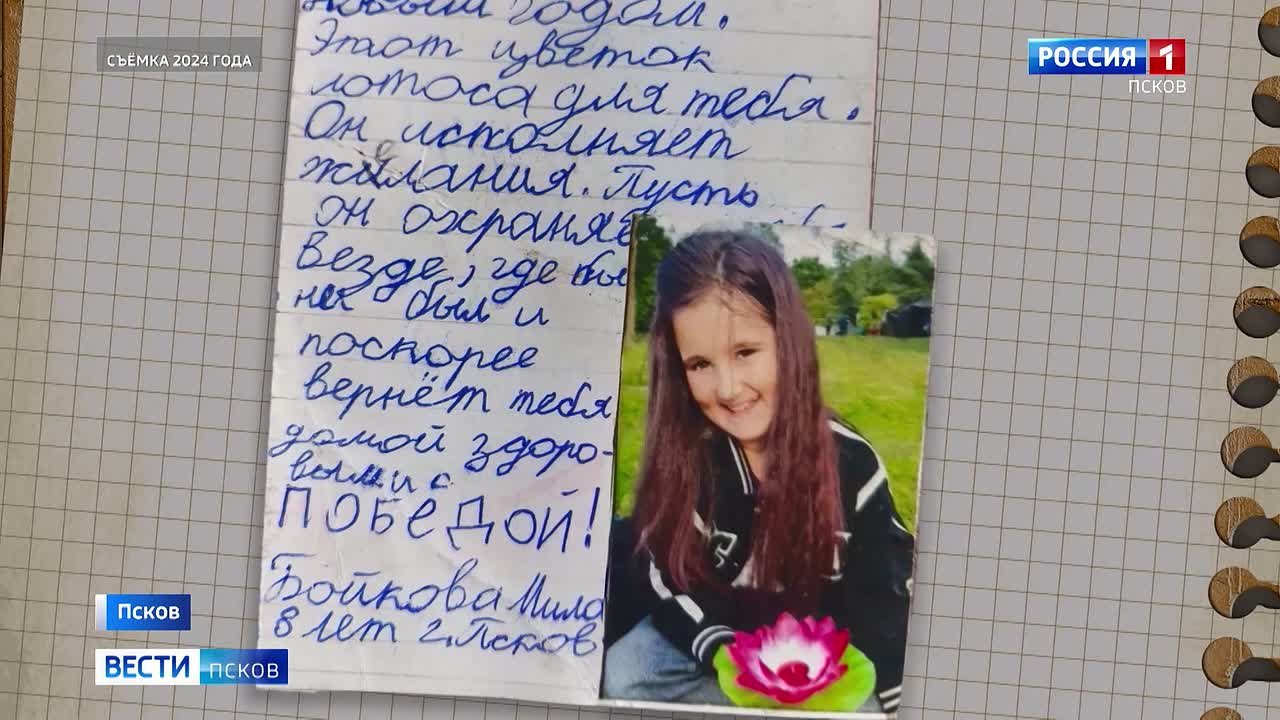 СЪЁМКА 2024 ГОДА
РОССИЯ 1
ПСКОВ
Новым годом.
Этот цветок
лотоса для тебя.
Он исполняет
желания. Пусть
он охраняе
Везде, где бы
не был и
поскорее
вернёт тебя
домой здоро-
вым и с
ПОБЕДОЙ!
Бойкова Мила
8 лет г. Псков
Псков
ВЕСТИ ПСКОВ